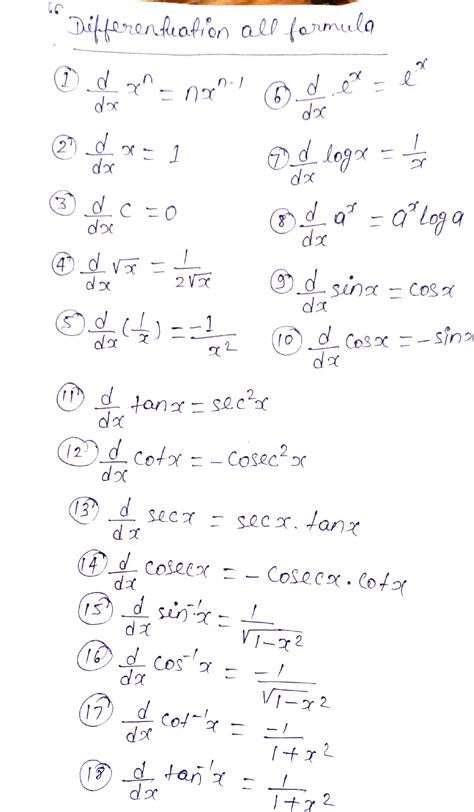 " Differentiation all formula
① d/dx xⁿ = nxⁿ⁻¹
② d/dx x = 1
③ d/dx c = 0
④ d/dx √x = 1/2√x
⑤ d/dx (1/x) = -1/x²
⑥ d/dx eˣ = eˣ
⑦ d/dx log x = 1/x
⑧ d/dx aˣ = aˣ log a
⑨ d/dx sinx = cosx
⑩ d/dx cosx = -sinx
⑪ d/dx tanx = sec²x
⑫ d/dx cotx = -cosec²x
⑬ d/dx secx = secx. tanx
⑭ d/dx cosecx = - cosecx. cotx
⑮ d/dx sin⁻¹x = 1/√1-x²
⑯ d/dx cos⁻¹x = -1/√1-x²
⑰ d/dx cot⁻¹x = -1/1+x²
⑱ d/dx tan⁻¹x = 1/1+x²